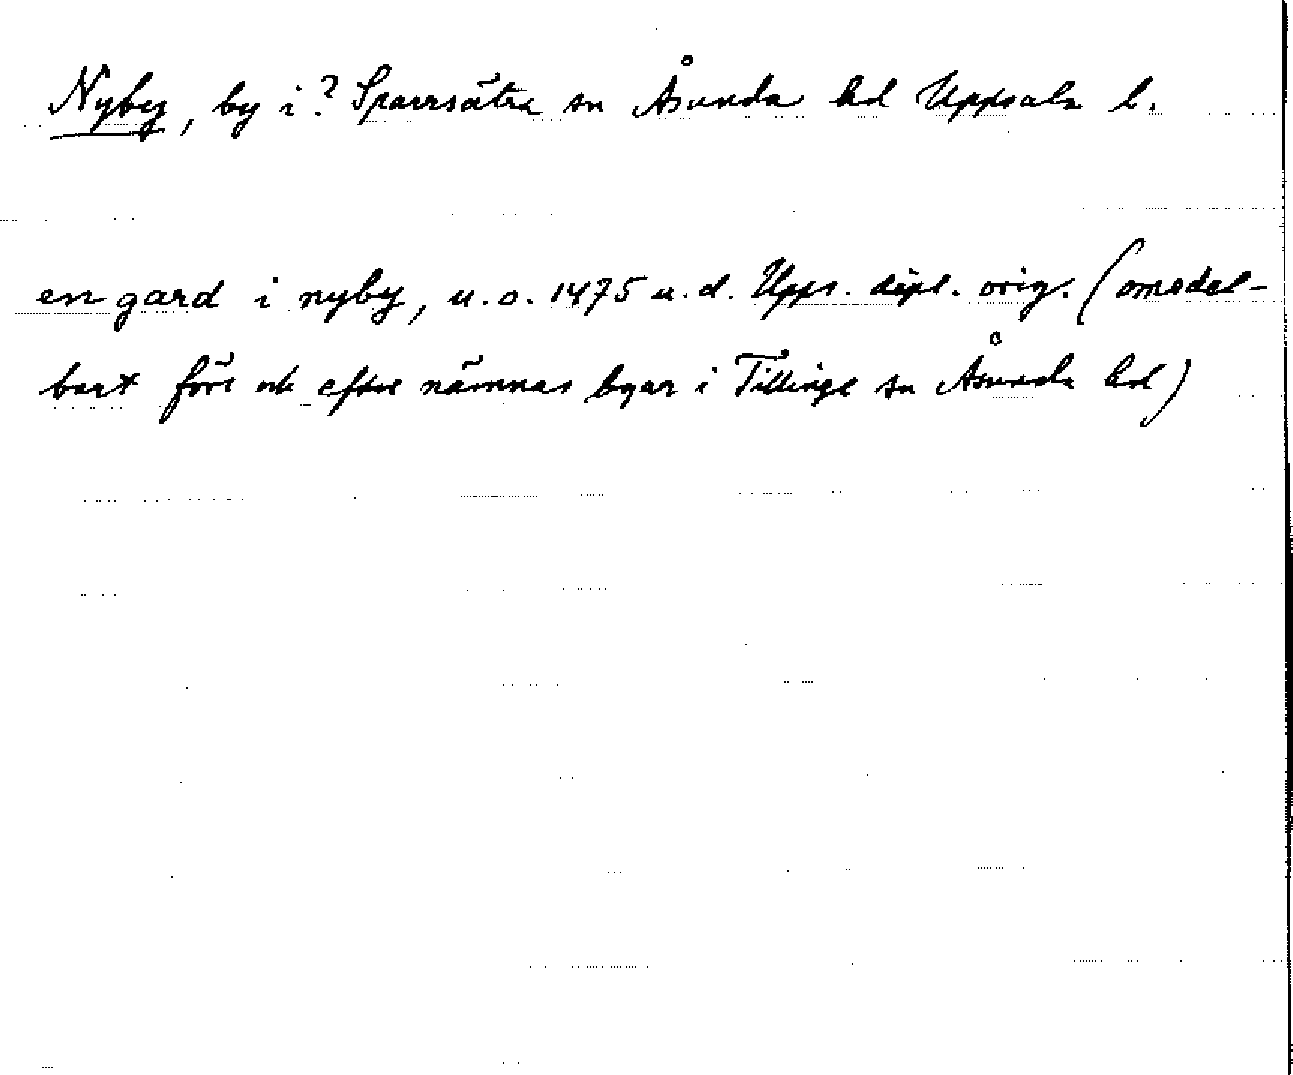 Nyby, by i? Sparrsätra sn Åsunda hd Uppsala l.
en gard i nyby, u.o. 1475 u.d. Upps. dipl. orig. (omedel-
bart före ock efter nämnas byar i Tillinge sn Åsunda hd)